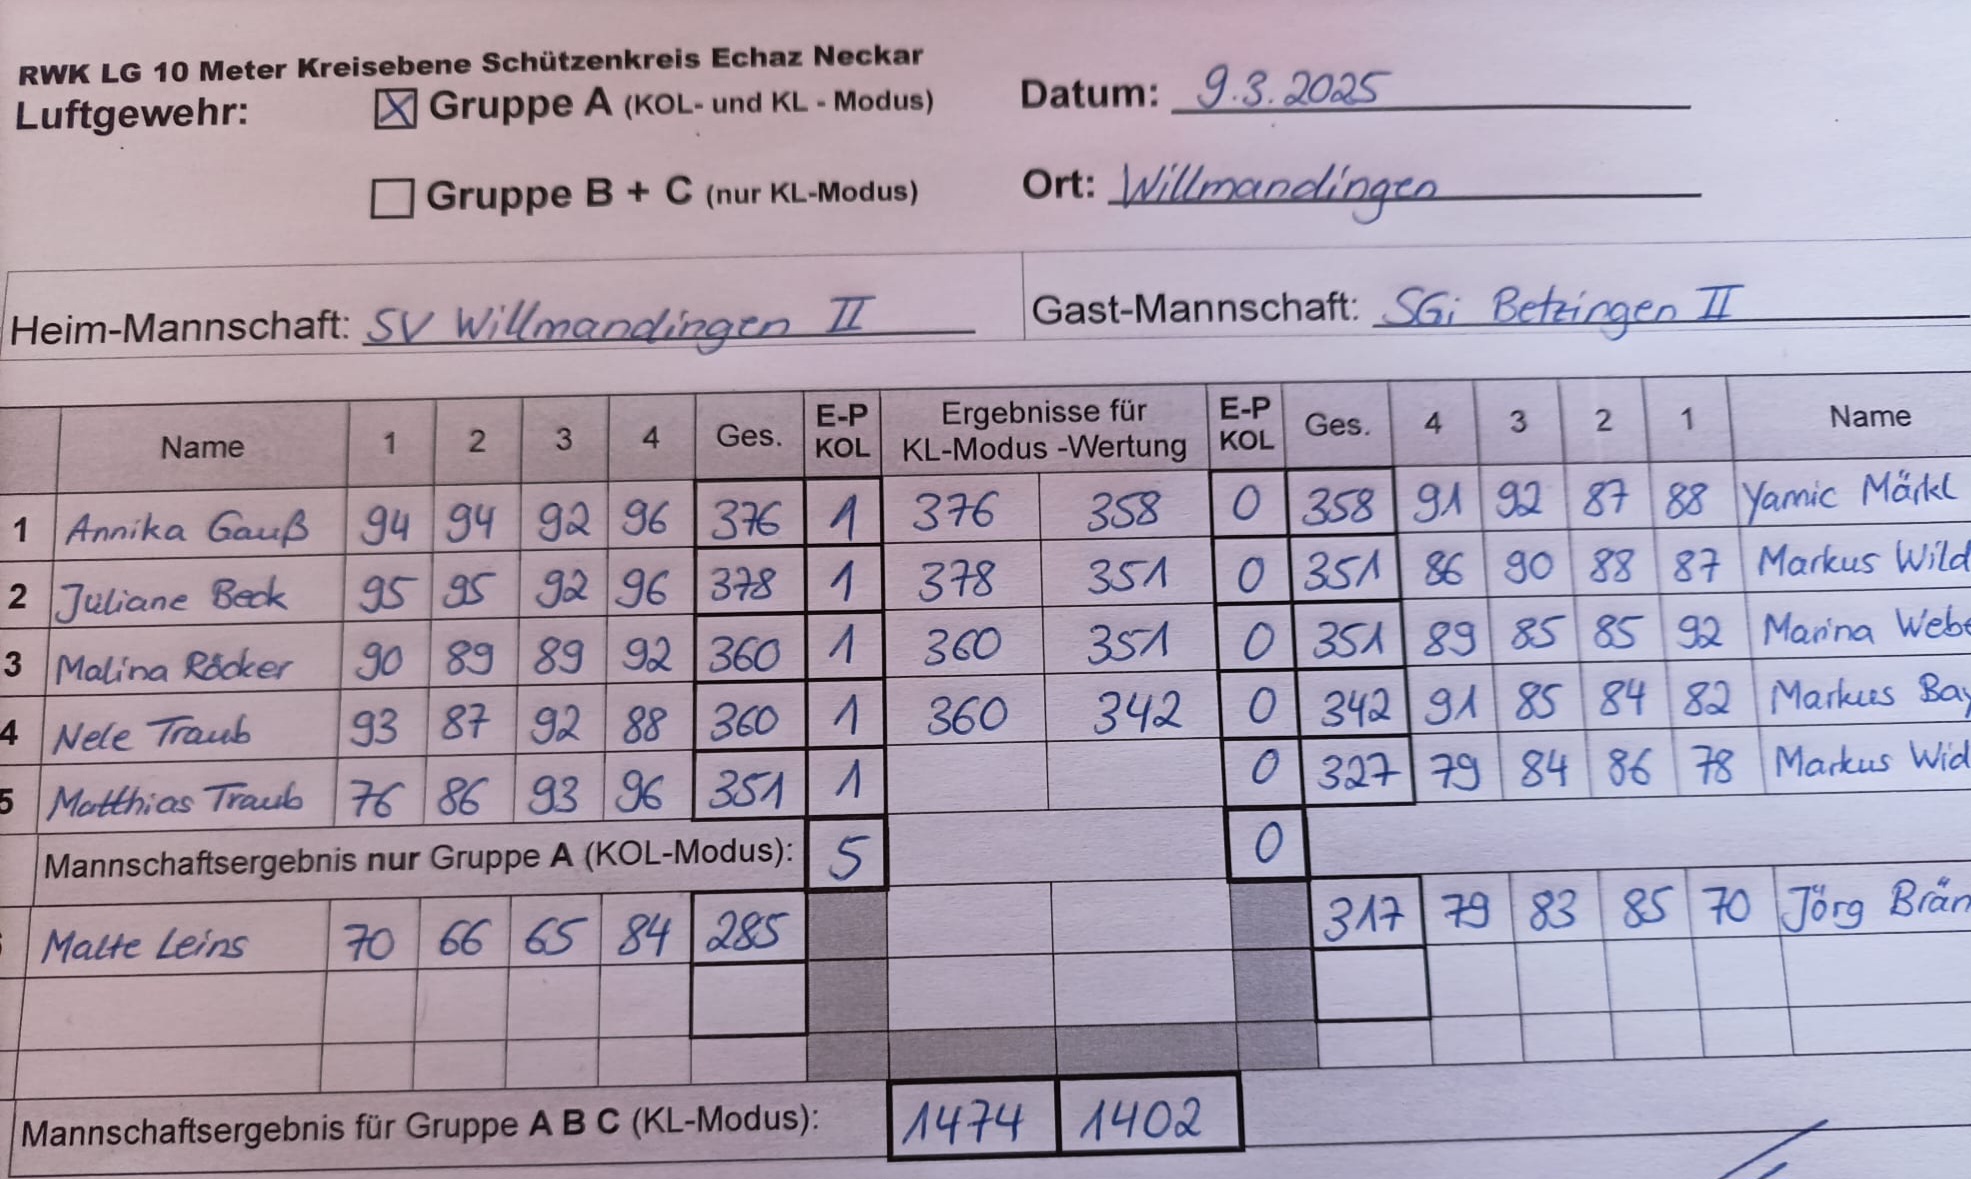 RWK LG 10 Meter Kreisebene Schützenkreis Echaz Neckar
Luftgewehr: X Gruppe A (KOL- und KL - Modus) Datum: 9.3.2025
Gruppe B + C (nur KL-Modus) Ort: Willmandingen
Heim-Mannschaft: SV Willmandingen II Gast-Mannschaft: SGi Betzingen II
Name 1 2 3 4 Ges. E-P KOL Ergebnisse für KL-Modus -Wertung E-P KOL Ges. 4 3 2 1 Name
1 Annika Gauß 94 94 92 96 376 1 376 358 0 358 91 92 87 88 Yannic Märkl
2 Juliane Beck 95 95 92 96 378 1 378 351 0 351 86 90 88 87 Markus Wild
3 Malina Röcker 90 89 89 92 360 1 360 351 0 351 89 85 85 92 Marina Webe
4 Nele Traub 93 87 92 88 360 1 360 342 0 342 91 85 84 82 Markus Bay
5 Matthias Traub 76 86 93 96 351 1 0 327 79 84 86 78 Markus Wid
Mannschaftsergebnis nur Gruppe A (KOL-Modus): 5 0
Malte Leins 70 66 65 84 285 317 79 83 85 70 Jörg Brän
Mannschaftsergebnis für Gruppe A B C (KL-Modus): 1474 1402